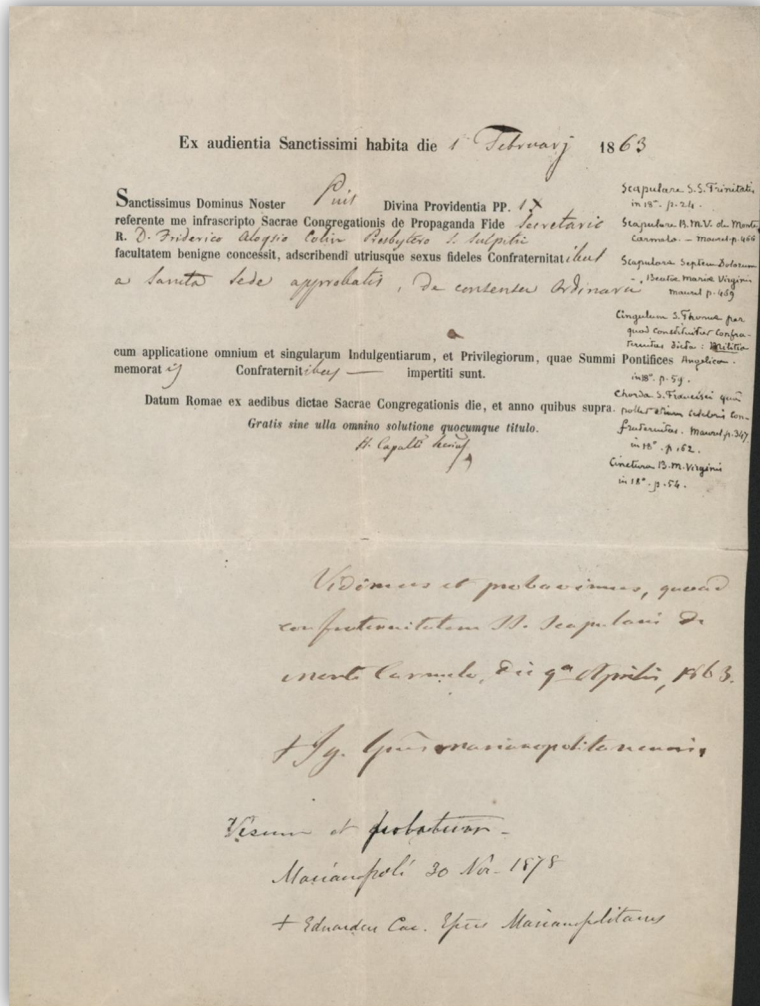 Ex audientia Sanctissimi habita die 1 Februarij 1863
Sanctissimus Dominus Noster Pius Divina Providentia PP. IX
referente me infrascripto Sacrae Congregationis de Propaganda Fide Secretario
R. D. Friderico Aloysio Colin Presbytero S. Sulpitii
facultatem benigne concessit, adscribendi utriusque sexus fideles Confraternitatibus
a Sancta Sede approbatis, de consensu Ordinarii
cum applicatione omnium et singularum Indulgentiarum, et Privilegiorum, quae Summi Pontifices
memoratis Confraternitibus — impertiti sunt.
Datum Romae ex aedibus dictae Sacrae Congregationis die, et anno quibus supra.
Gratis sine ulla omnino solutione quocumque titulo.
H. Capalti
Scapulare S.S. Trinitatis
in 18°. p. 24.
Scapulare B.M.V. de Monte
Carmelo. — Maurel p. 466
Scapulare Septem Dolorum
Beatae Mariae Virginis
Maurel p. 469
Cingulum S. Thomae per
quod constituitur confra-
ternitas dicta: Militia
Angelica.
in 18°. p. 59.
Chorda S. Francisci quâ
pollet etiam celebris con-
fraternitas. Maurel p. 347
in 18°. p. 162.
Cinctura B.M. Virginis
in 18°. p. 54.
Vidimus et probavimus, quoad
confraternitatem SS. Scapularis de
monte Carmelo, die 9a Aprilis, 1863.
+ Ig. Epus Marianopolitanensis,
Visum et probatum —
Marianopoli 30 Nov. 1878
+ Eduardus Car. Epus Marianopolitanus